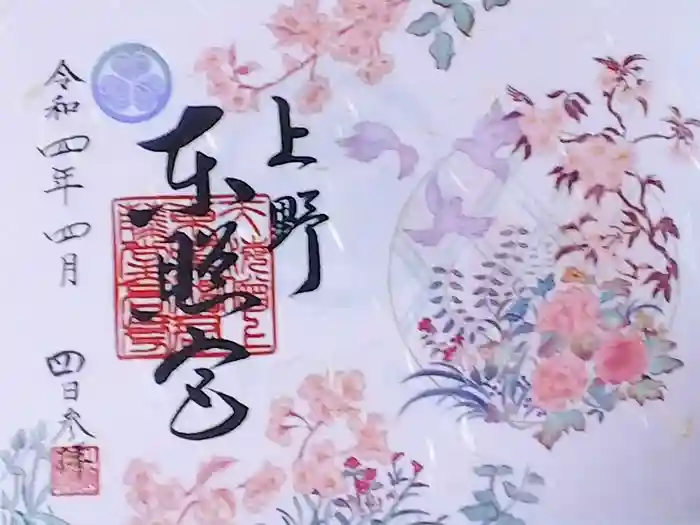 上野
东照宮
令和四年四月
四日参拝